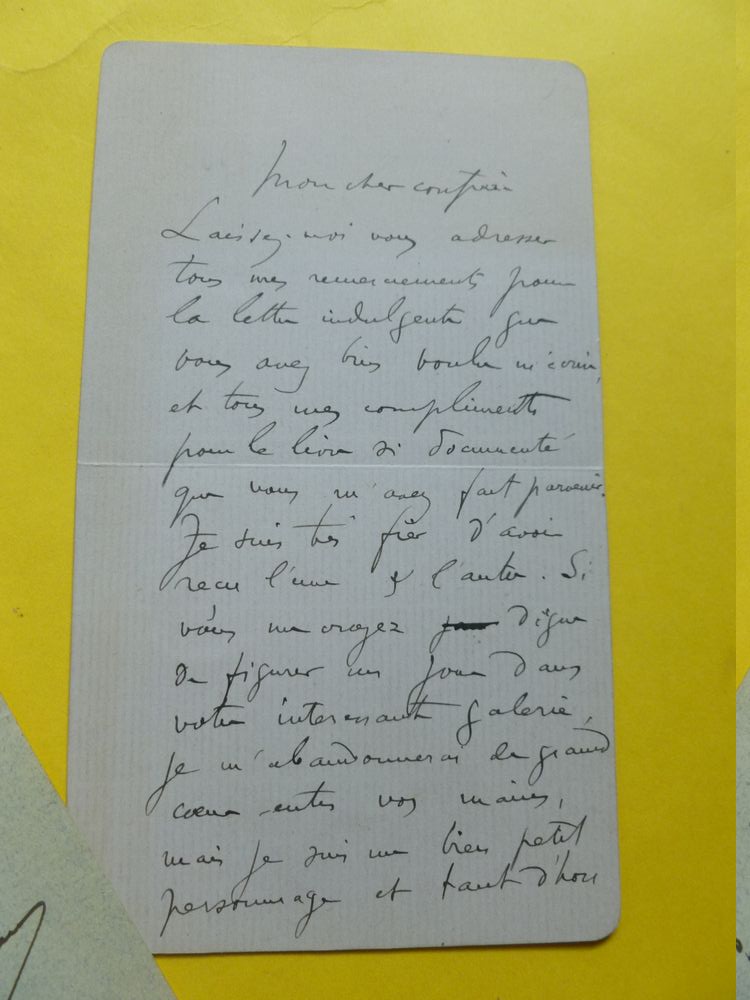 Mon cher confrère
Laissez-moi vous adresser
tous mes remerciements pour
la lettre indulgente que
vous avez bien voulu m'écrire,
et tous mes compliments
pour le livre si documenté
que vous m'avez fait parvenir.
Je suis très fier d'avoir
reçu l'une & l'autre. Si
vous me croyez digne
de figurer un jour dans
votre interessante galerie,
je m'abandonnerai de grand
cœur entre vos mains,
mais je suis un bien petit
personnage et tant d'hon